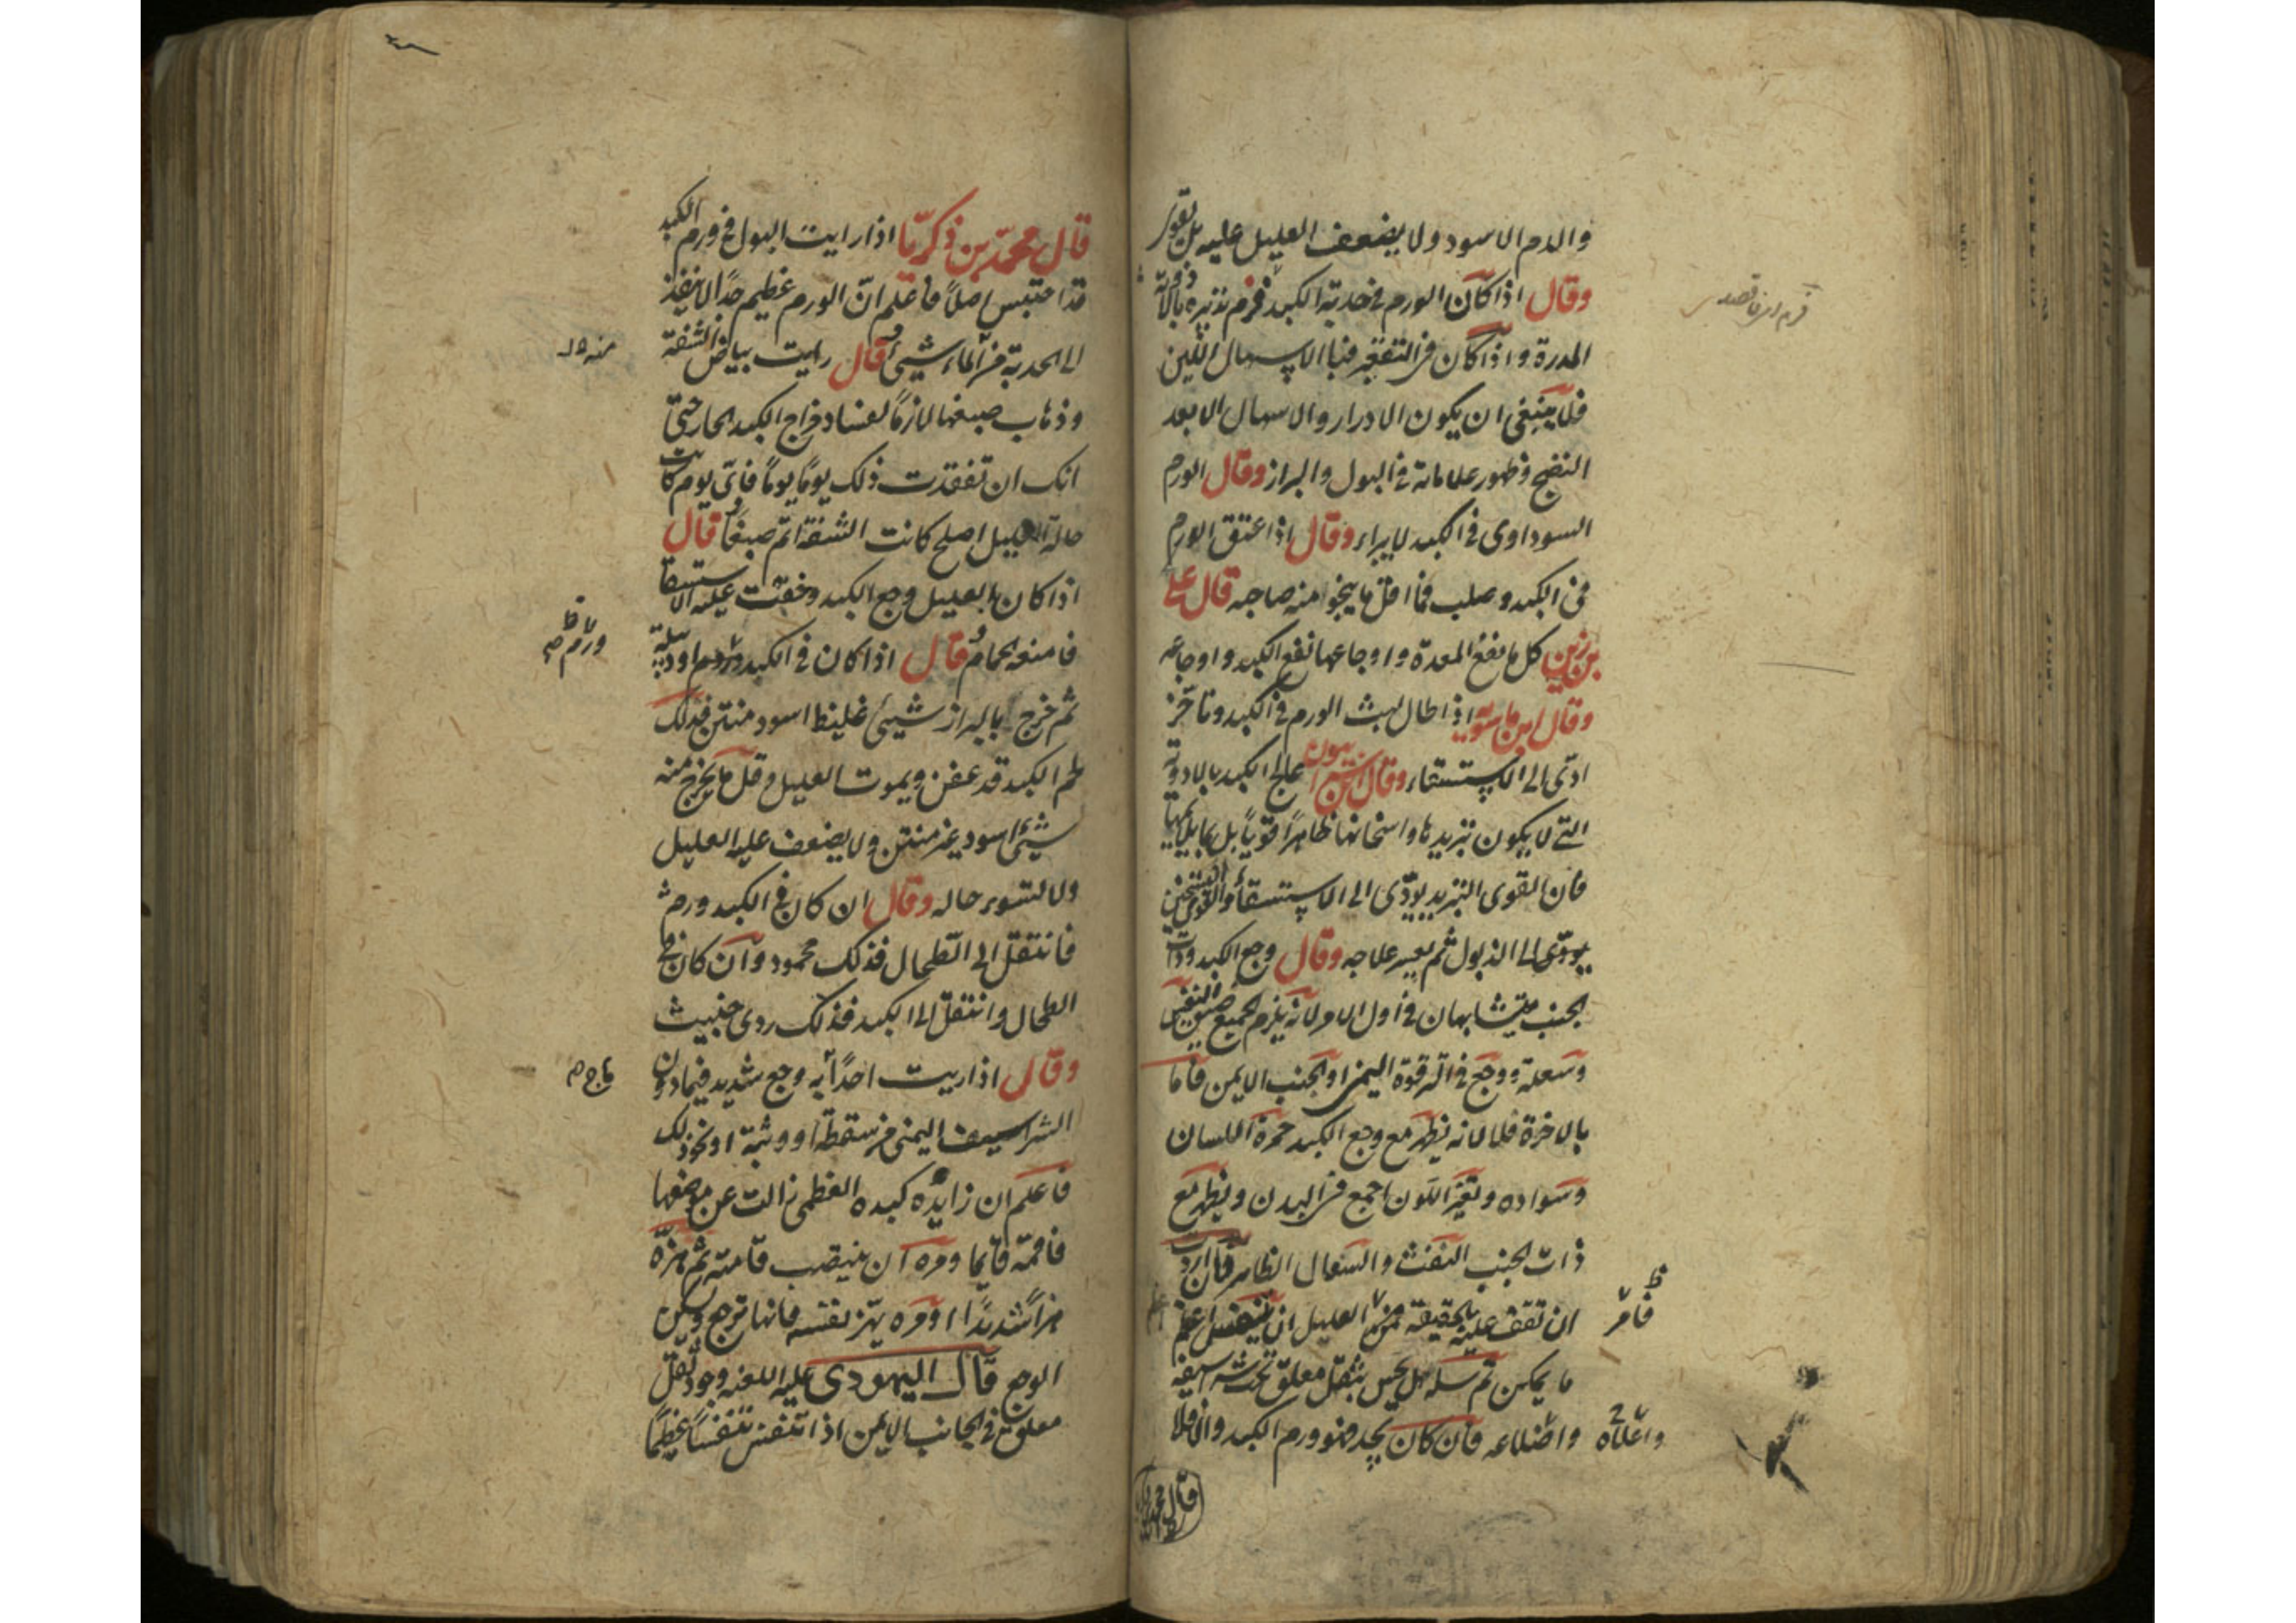 والدم الاسود ولا يضعف العليل عليه بل تقوى
وقال اذا كان الورم فى حدبة الكبد فرم تدبيره بالادوية
المدرة واذا كان فى التقعير فبالاسهال اللين
فلا ينبغى ان يكون الادرار والاسهال الا بعد
النضج وظهور علاماته فى البول والبراز وقال الورم
السوداوى فى الكبد لا يبراء وقال اذا عتق الورم
فى الكبد وصلب فما اقل ما ينجوا منه صاحبه قال على
بن زين كل ما نفع المعدة واوجاعها نفع الكبد واوجاعه
وقال ابن ماسويه اذا طال لبث الورم فى الكبد وتاخر
ادى الى الاستسقاء وقال ابن سرابيون علاج الكبد بالادوية
التى لا يكون تبريدها واسخانها ظاهرا قويا بل
فان القوى التبريد يودى الى الاستسقاء والقوى التسخين
يودى الى الذبول ثم يعسر علاجه وقال وجع الكبد وذات
الجنب يتشابهان فى اول الامر لانه يلزم الجميع ضيق النفس
وسعلة ووجع فى الترقوة اليمنى او الجنب الايمن فاما
بالاخرة فلا لانه يظهر مع وجع الكبد حمرة اللسان
وسواده وتغير اللون اجمع فى البدن ويظهر مع
ذات الجنب النفث والسعال الظاهر فان اردت
ان تقف عليه بالحقيقة فمر العليل ان يتنفس اعظم
ما يمكن ثم سله هل يحس بثقل معلق تحت شراسيفه
واضلاعه فان كان يجد فهو ورم الكبد والا فلا
فامر
واعلاه
قال محمد
قال محمد بن زكريا اذا رايت البول فى ورم الكبد
قد احتبس اصلا فاعلم ان الورم عظيم جدا لا ينفذ
الى الحدبة من الماء شيئ وقال رايت بياض الشفة
وذهاب صبغها لازما لفساد مزاج الكبد الحار حتى
انك ان تفقدت ذلك يوما يوما فاى يوم كانت
حالة العليل اصلح كانت الشفة اتم صبغا وقال
اذا كان بالعليل وجع الكبد وخفت عليه الاستسقا
فامنعه الحمام وقال اذا كان فى الكبد ورم او دبيلة
ثم خرج بالبراز شيئ غليظ اسود منتن فذلك
لحم الكبد قد عفن ويموت العليل وقل ما يخرج منه
شيئ اسود غير منتن ولا يضعف عليه العليل
ولا تسوء حاله وقال ان كان فى الكبد ورم
فانتقل الى الطحال فذلك محمود وان كان فى
الطحال وانتقل الى الكبد فذلك ردى خبيث
وقال اذا رايت احدا به وجع شديد فيما دون
الشراسيف اليمنى من سقطة او وثبة او نحو ذلك
فاعلم ان زايدة كبده العظمى زالت عن موضعها
فاقمه قايما ومره ان ينتصب قامته ثم هزه
هزا شديدا او مره يهز نفسه فانها ترجع ويسكن
الوجع قال اليهودى عليه اللعنه وجود ثقل
معلق فى الجانب الايمن اذا تنفس تنفسا عظيما